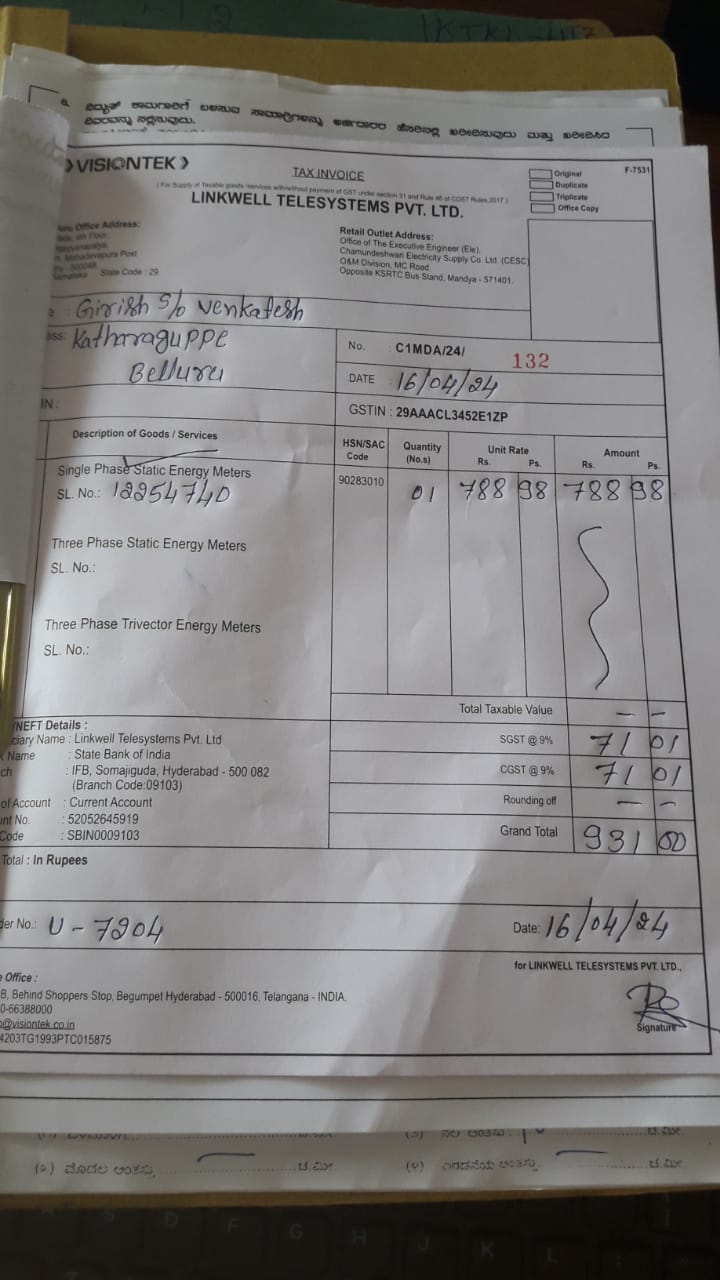 ೩. ವಿದ್ಯುತ್ ಕಾಮಗಾರಿಗೆ ಬಳಸುವ ಸಾಮಾಗ್ರಿಗಳನ್ನು ಅರ್ಜಿದಾರರ ಹೆಸರಿನಲ್ಲಿ ಖರೀದಿಸುವುದು ಮತ್ತು ಖರೀದಿಸಿದ
ವಿವರವನ್ನು ಸಲ್ಲಿಸುವುದು.
VISIONTEK
TAX INVOICE
( For Supply of Taxable goods /services with/without payment of GST under section 31 and Rule 46 of CGST Rules,2017 )
LINKWELL TELESYSTEMS PVT. LTD.
Original
Duplicate
Triplicate
Office Copy
F-7531
Office Address:
Mahadevapura Post
State Code : 29
Retail Outlet Address:
Office of The Executive Engineer (Ele),
Chamundeshwari Electricity Supply Co. Ltd. (CESC)
O&M Division, MC Road,
Opposite KSRTC Bus Stand, Mandya - 571401.
: Girish S/o Venkatesh
ess: Katharaguppe
Belluru
No. : C1MDA/24/ 132
DATE : 16/04/24
IN :
GSTIN : 29AAACL3452E1ZP
Description of Goods / Services
HSN/SAC Code
Quantity (No.s)
Unit Rate Rs. Ps.
Amount Rs. Ps.
Single Phase Static Energy Meters
SL. No.: 12254740
90283010 01 788 98 788 98
Three Phase Static Energy Meters
SL. No.:
Three Phase Trivector Energy Meters
SL. No.:
Total Taxable Value — —
SGST @ 9% 71 01
CGST @ 9% 71 01
Rounding off — —
Grand Total 931 00
/NEFT Details :
ciary Name : Linkwell Telesystems Pvt. Ltd
Name : State Bank of India
ch : IFB, Somajiguda, Hyderabad - 500 082
(Branch Code:09103)
of Account : Current Account
nt No. : 52052645919
Code : SBIN0009103
Total : In Rupees
der No.: U - 7204
Date: 16/04/24
for LINKWELL TELESYSTEMS PVT. LTD.,
Signature
Office :
B, Behind Shoppers Stop, Begumpet Hyderabad - 500016, Telangana - INDIA.
0-66388000
@visiontek.co.in
4203TG1993PTC015875
(೨) ಮೊದಲ ಅಂತಸ್ತು ಚ.ಮೀ.
(೪) ಎರಡನೆಯ ಅಂತಸ್ತು ಚ.ಮೀ
S D F G H J K L